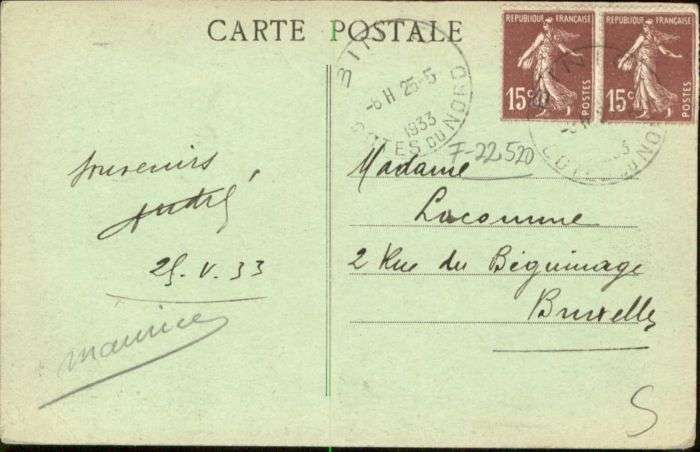 CARTE POSTALE
REPUBLIQUE FRANÇAISE
15c
POSTES
REPUBLIQUE FRANÇAISE
15c
POSTES
6 H 25-5
1933
COTES DU NORD
F-22,520
Souvenirs
André
25.V.33
Maurice
Madame
Lacomme
2 Rue du Béguinage
Bruxelles
S